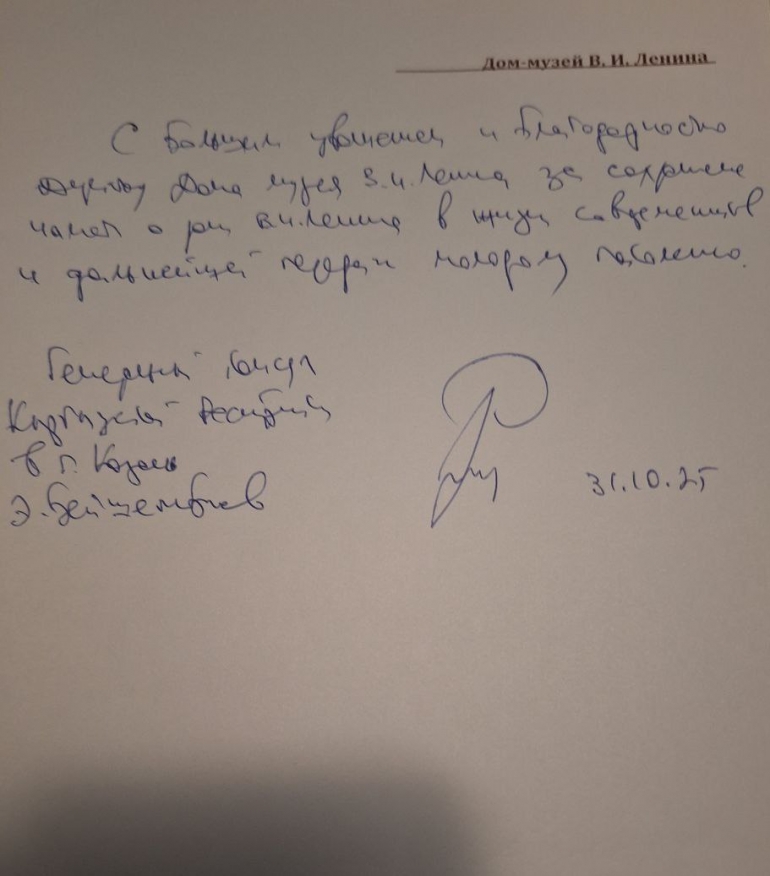 Дом-музей В. И. Ленина
С большим уважением и благодарностью
Дома музея В.И. Ленина за сохранение
памяти о В.И. Ленина в жизни современников
и дальнейшей передачи молодому поколению.
Генеральный консул
Кыргызской Республики
в г. Казань
Э. Бейшембиев
31.10.25